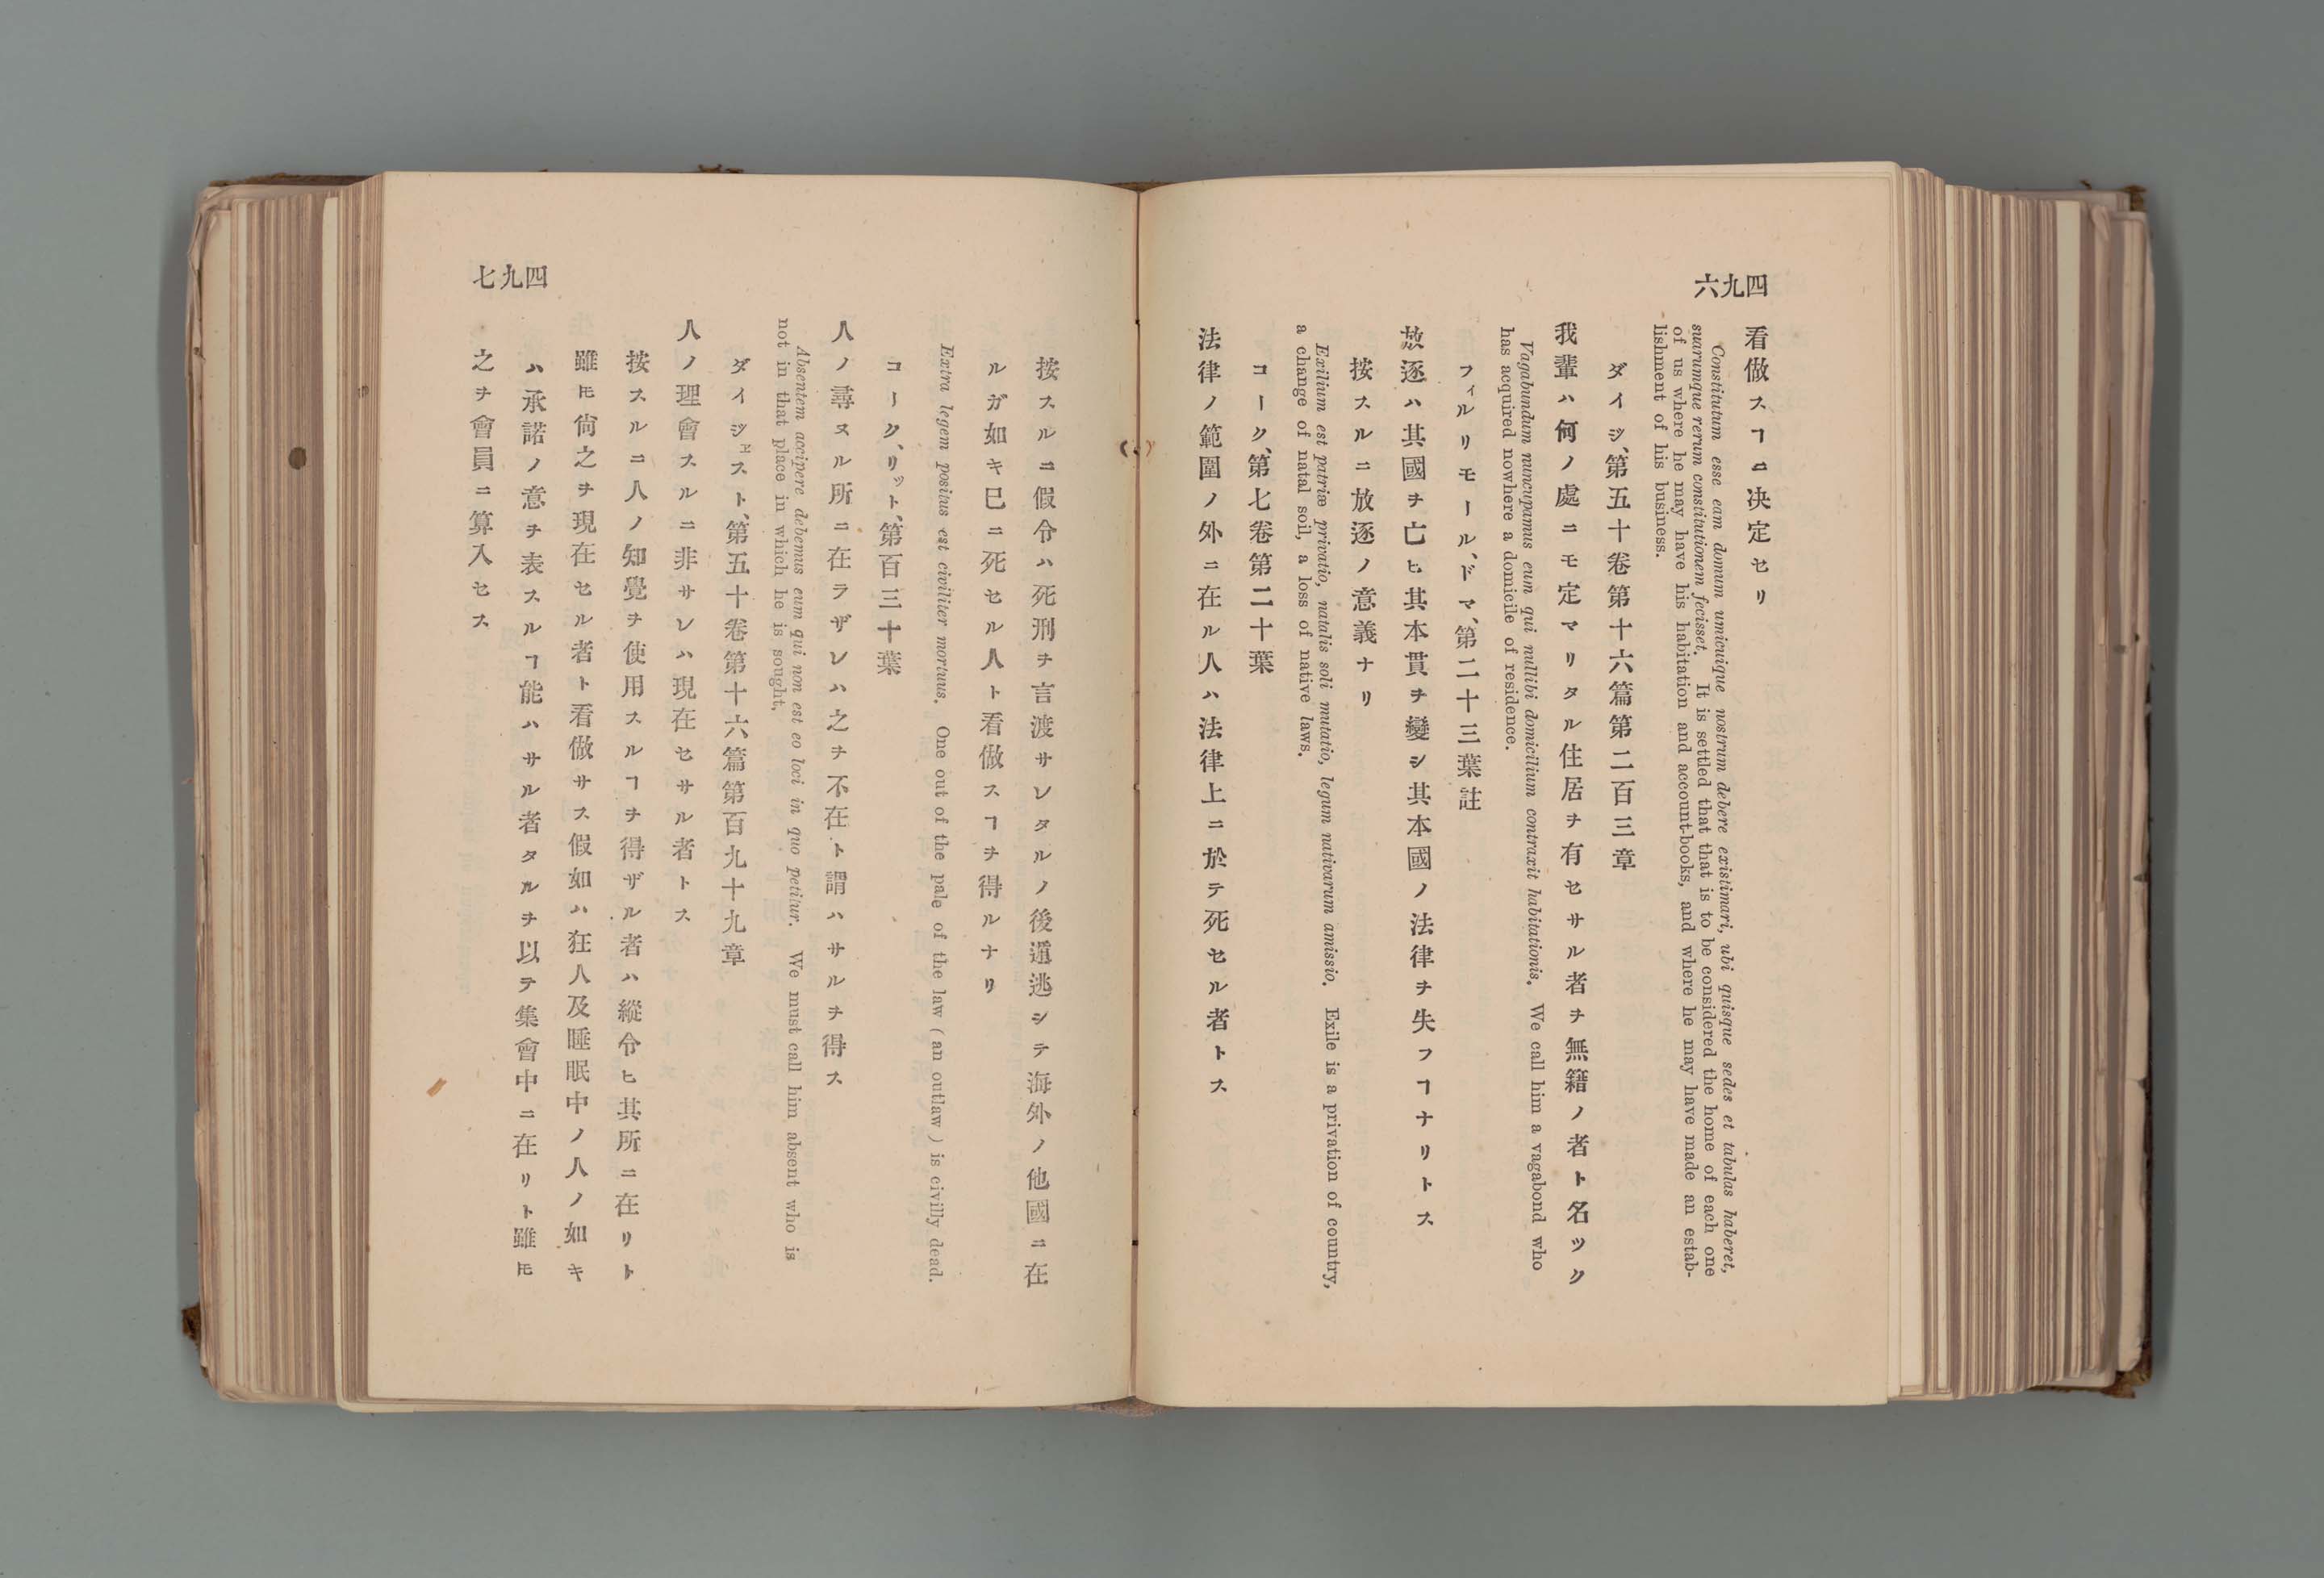 四九六
看做スヿニ决定セリ
Constitutum esse eam domum umicuique nostrum debere existimari, ubi quisque sedes et tabulas haberet,
suarumque rerum constitutionem fecisset. It is settled that that is to be considered the home of each one
of us where he may have his habitation and account-books, and where he may have made an estab-
lishment of his business.
ダイジ、第五十卷第十六篇第二百三章
我輩ハ何ノ處ニモ定マリタル住居ヲ有セサル者ヲ無籍ノ者ト名ツク
Vagabundum nuncupamus eum qui nullibi domicilium contraxit habitationis. We call him a vagabond who
has acquired nowhere a domicile of residence.
フィルリモール、ドマ、第二十三葉註
放逐ハ其國ヲ亡ヒ其本貫ヲ變シ其本國ノ法律ヲ失フヿナリトス
按スルニ放逐ノ意義ナリ
Exilium est patriæ privatio, natalis soli mutatio, legum nativarum amissio. Exile is a privation of country,
a change of natal soil, a loss of native laws.
コーク、第七卷第二十葉
法律ノ範圍ノ外ニ在ル人ハ法律上ニ於テ死セル者トス
四九七
按スルニ假令ハ死刑ヲ言渡サレタルノ後逓逃シテ海外ノ他國ニ在
ルガ如キ巳ニ死セル人ト看做スヿヲ得ルナリ
Extra legem positus est civiliter mortuus. One out of the pale of the law (an outlaw) is civilly dead.
コーク、リット、第百三十葉
人ノ尋ヌル所ニ在ラザレハ之ヲ不在ト謂ハサルヲ得ス
Absentem accipere debemus eum qui non est eo loci in quo petitur. We must call him absent who is
not in that place in which he is sought.
ダイジェスト、第五十卷第十六篇第百九十九章
人ノ理會スルニ非サレハ現在セサル者トス
按スルニ人ノ知覺ヲ使用スルヿヲ得ザル者ハ縱令ヒ其所ニ在リト
雖ㇳモ尙之ヲ現在セル者ト看做サス假如ハ狂人及睡眠中ノ人ノ如キ
ハ承諾ノ意ヲ表スルヿ能ハサル者タルヲ以テ集會中ニ在リト雖ㇳモ
之ヲ會員ニ算入セス